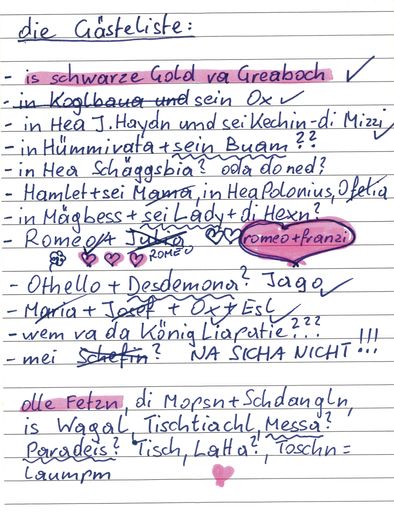 die Gästeliste:
- is schwarze Gold va Greaboch
- in Koglbaua und sein Ox
- in Hea J. Haydn und sei Kechin-di Mizzi
- in Hümmivata + sein Buam??
- in Hea Schäggsbia? oda do ned?
- Hamlet + sei Mama, in Hea Polonius, Ofelia
- in Mägbess + sei Lady + di Hexn?
- Romeo + Julia romeo + franzi
ROMEO
- Othello + Desdemona? Jago
- Maria + Josef + Ox + Esl
- wem va da König Liapatie???
- mei Schefin? NA SICHA NICHT!!!
olle Fetzn, di Mopsn + Schdangln,
is Wagal, Tischtiachl, Messa?
Paradeis? Tisch, Latta?, Toschn=
laumpm